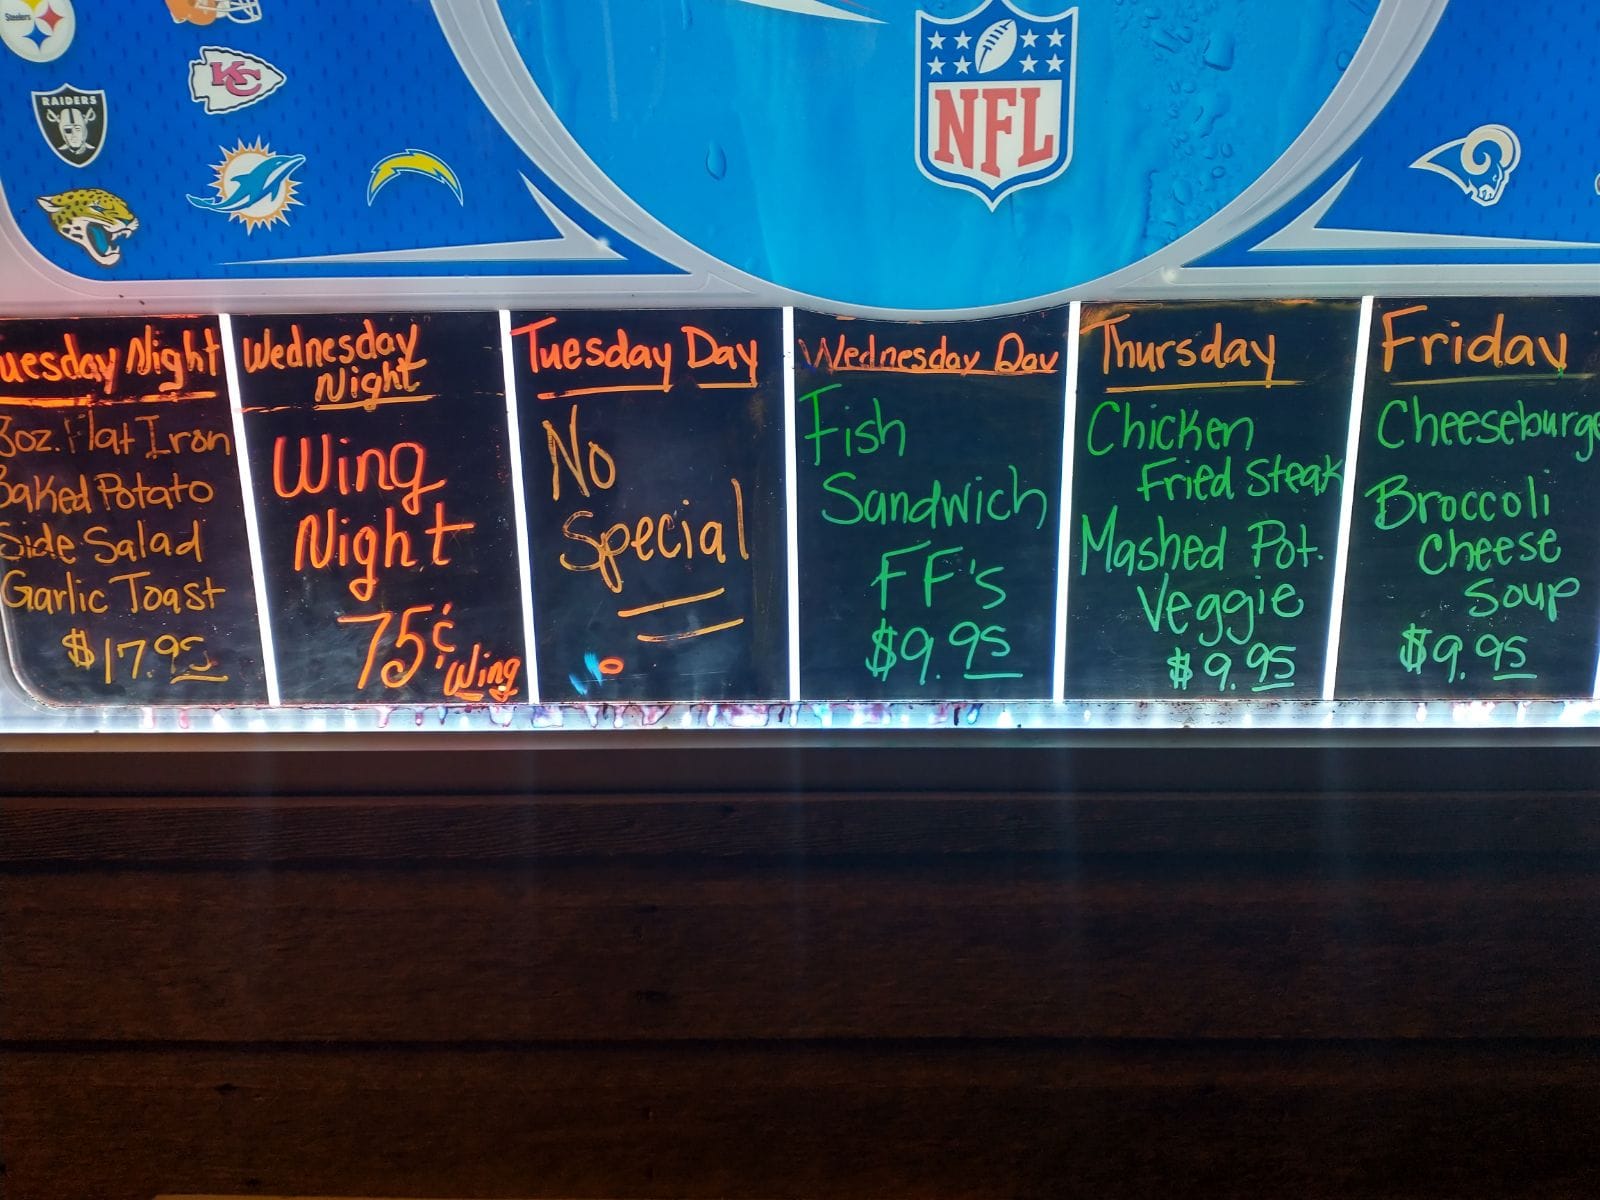 Steelers
KC
RAIDERS
NFL
uesday Night
8oz. Flat Iron
Baked Potato
Side Salad
Garlic Toast
$17.95
Wednesday
Night
Wing
Night
75¢
Wing
Tuesday Day
No
Special
Wednesday Day
Fish
Sandwich
FF's
$9.95
Thursday
Chicken
Fried Steak
Mashed Pot.
Veggie
$9.95
Friday
Cheeseburge
Broccoli
Cheese
Soup
$9.95